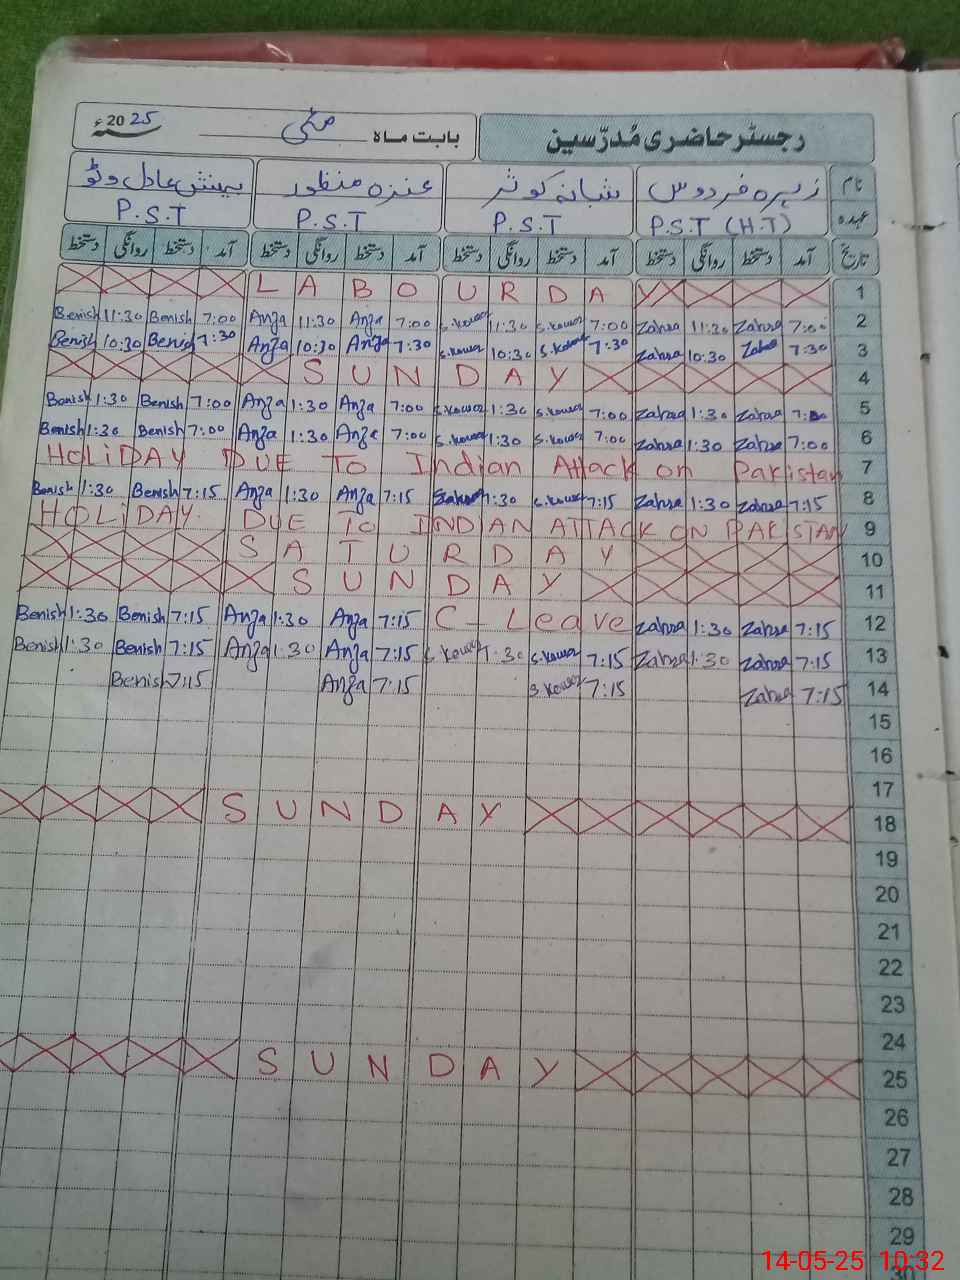 رجسٹر حاضری مُدرّسین بابت ماہ مئی 2025ء
نام زہرہ فردوس شبانہ کوثر عنزہ منظور بینش عادل وٹو
عہدہ P.S.T (H.T) P.S.T P.S.T P.S.T
تاریخ آمد دستخط روانگی دستخط آمد دستخط روانگی دستخط آمد دستخط روانگی دستخط آمد دستخط روانگی دستخط
LABOUR DAY 1
Benish 11:30 Benish 7:00 Anza 11:30 Anza 7:00 S.Kowsar 11:30 S.Kowsar 7:00 Zahra 11:30 Zahra 7:00 2
Benish 10:30 Benish 7:30 Anza 10:30 Anza 7:30 S.Kowsar 10:30 S.Kowsar 7:30 Zahra 10:30 Zahra 7:30 3
SUNDAY 4
Benish 1:30 Benish 7:00 Anza 1:30 Anza 7:00 S.Kowsar 1:30 S.Kowsar 7:00 Zahra 1:30 Zahra 7:00 5
Benish 1:30 Benish 7:00 Anza 1:30 Anza 7:00 S.Kowsar 1:30 S.Kowsar 7:00 Zahra 1:30 Zahra 7:00 6
HOLiDAY DUE To Indian Attack on Pakistan 7
Benish 1:30 Benish 7:15 Anza 1:30 Anza 7:15 1:30 S.Kowsar 7:15 Zahra 1:30 Zahra 7:15 8
HOLiDAY. DUE To INDIAN ATTACK ON PAKISTAN 9
SATURDAY 10
SUNDAY 11
Benish 1:30 Benish 7:15 Anza 1:30 Anza 7:15 C-Leave Zahra 1:30 Zahra 7:15 12
Benish 1:30 Benish 7:15 Anza 1:30 Anza 7:15 S.Kowsar 1:30 S.Kowsar 7:15 Zahra 1:30 Zahra 7:15 13
Benish 7:15 Anza 7:15 S.Kowsar 7:15 Zahra 7:15 14
15
16
17
SUNDAY 18
19
20
21
22
23
24
SUNDAY 25
26
27
28
29
30
14-05-25 10:32